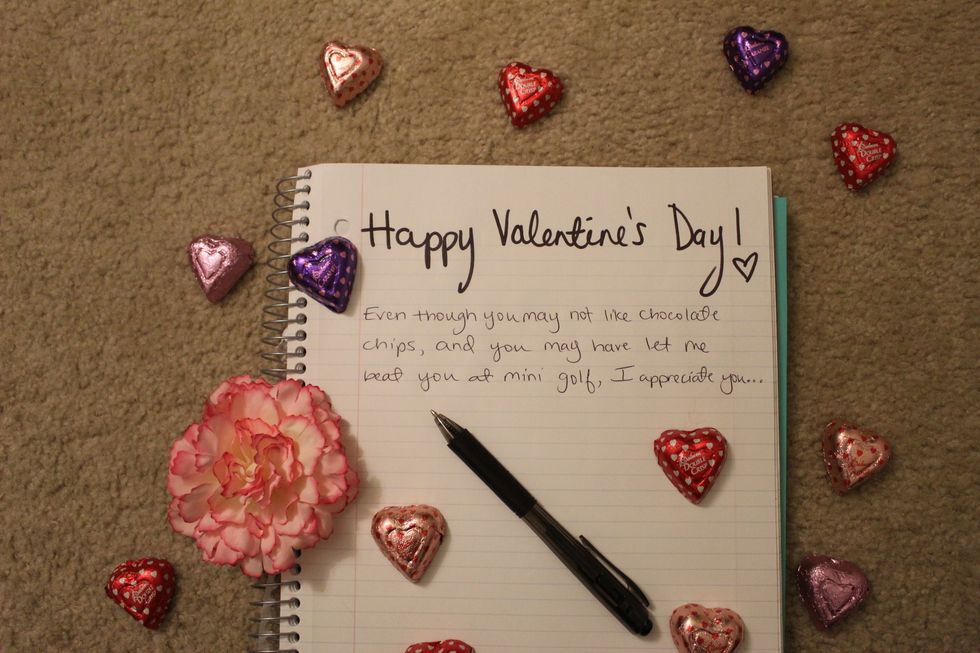 Happy Valentine's Day!
Even though you may not like chocolate
chips, and you may have let me
beat you at mini golf, I appreciate you...
DOUBLE
CRISP
DOUBLE
CRISP
DOUBLE
CRISP